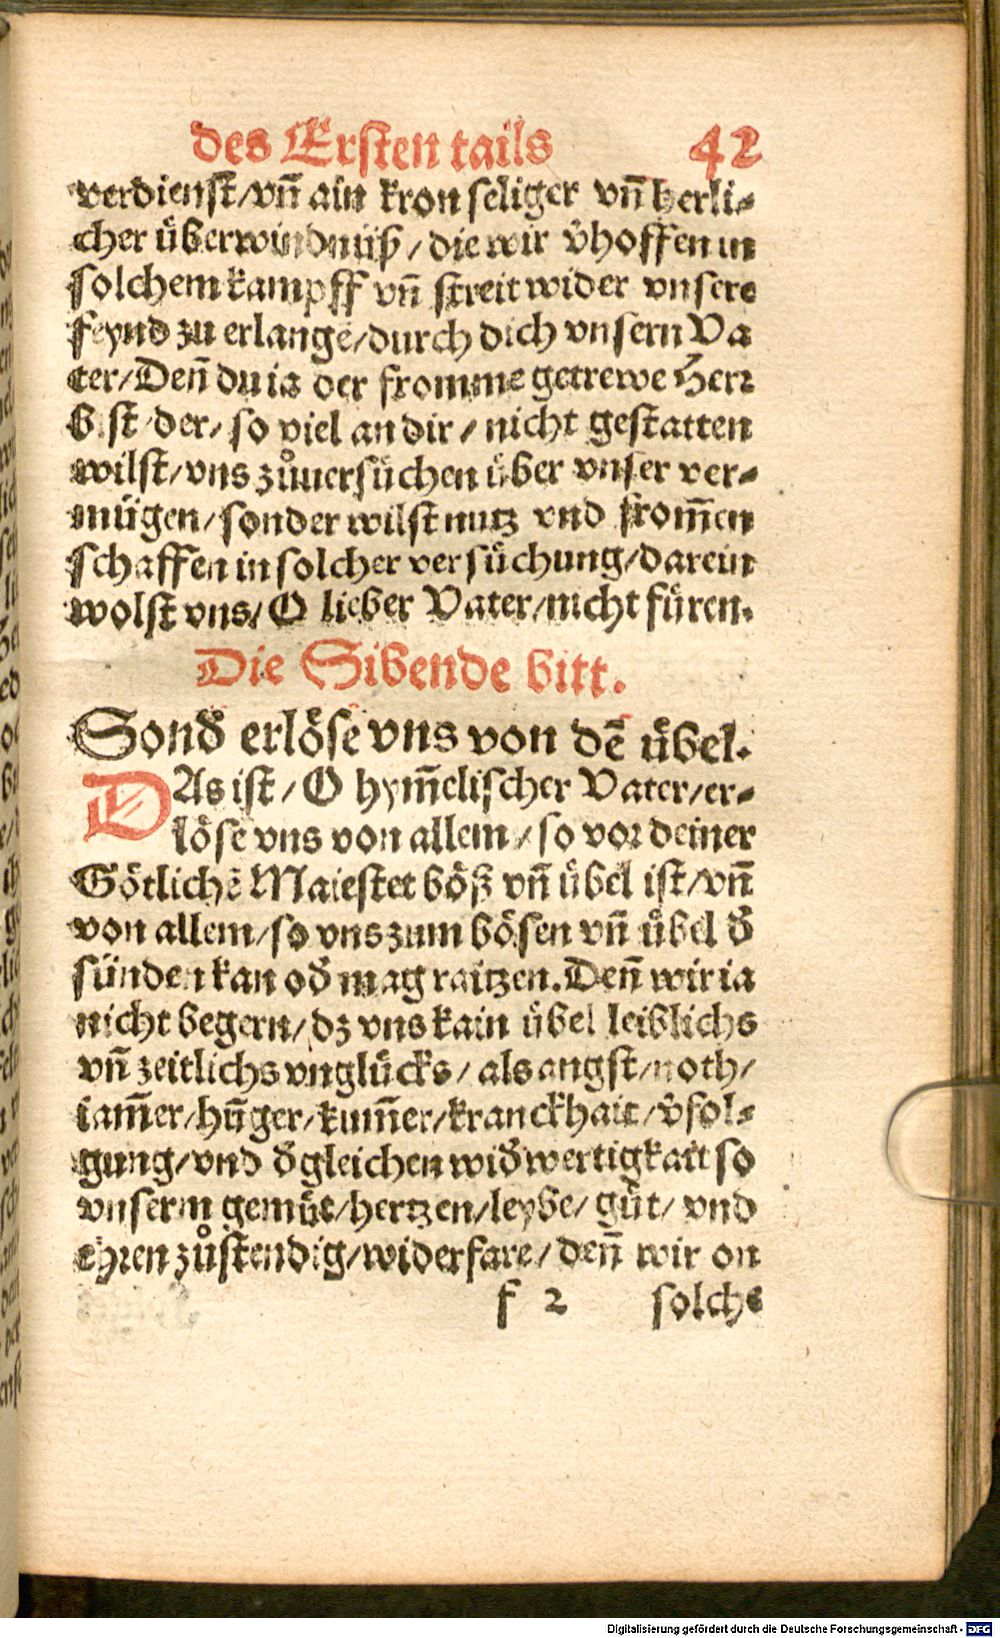 des Ersten tails 42
verdienst/vñ ain kron seliger vñ herli-
cher überwindnüß/die wir v̄hoffen in
solchem kampff vñ streit wider vnsere
feynd zu erlangē/durch dich vnsern Va
ter/Deñ du ia der fromme getrewe Herr
bist der/so viel an dir/nicht gestatten
wilst/vns zůuersůchen über vnser ver-
mügen/sonder wilst nutz vnd from̄en
schaffen in solcher versůchung/darein
wolst vns/O lieber Vater/nicht füren.
Die Sibende bitt.
Sond̄ erlöse vns von dē übel.
DAs ist/O hym̄elischer Vater/er-
löse vns von allem/so vor deiner
Götlichē Maiestet böß vñ übel ist/vñ
von allem/so vns zum bösen vñ übel d̄
sünden kan od̄ mag raitzen.Deñ wir ia
nicht begern/dz vns kain übel leiblichs
vñ zeitlichs vnglücks/als angst/noth/
iam̄er/hūger/kum̄er/kranckhait/v̄fol-
gung/vnd d̄gleichen wid̄wertigkait so
vnserm gemüt/hertzen/leybe/gůt/vnd
ehren zůstendig/widerfare/deñ wir on
f 2 solchs
Digitalisierung gefördert durch die Deutsche Forschungsgemeinschaft - DFG